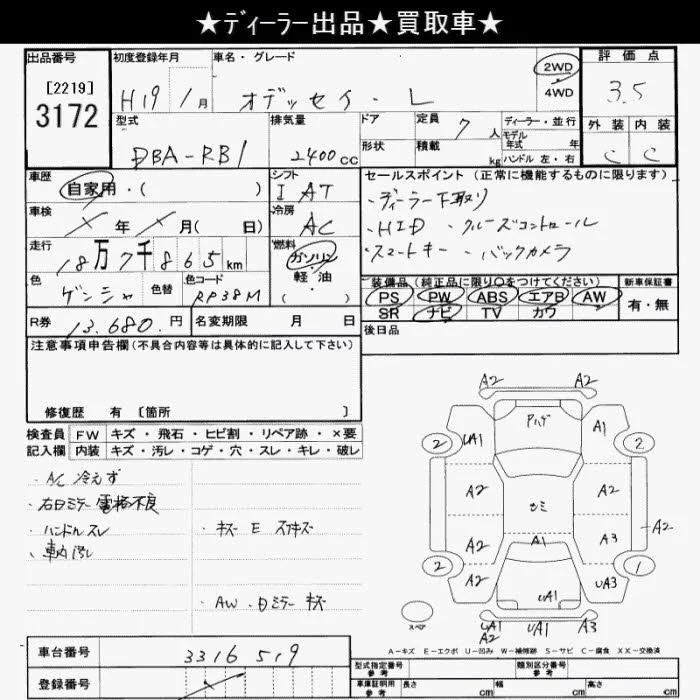 ★ディーラー出品★買取車★
出品番号 [2219] 3172
初度登録年月 H19年 1月
車名・グレード オデッセイ・L
2WD 4WD
評価点 3.5
外装 内装 C C
型式 DBA-RB1
排気量 2400cc
ドア 形状
定員 7人 積載 kg
ディーラー・並行
モデル年式 年
ハンドル 左・右
車歴 自家用・( )
シフト I AT
セールスポイント(正常に機能するものに限ります)
・ディーラー下取り
・HID ・クルーズコントロール
・スマートキー ・バックカメラ
車検 × 年 × 月( 日)
冷房 AC
走行 18万7千865km
燃料 ガソリン 軽・油 ( )
色 ゲンシャ 色替 色コード RP38M
装備品(純正品に限り○をつけてください)
PS PW ABS エアB AW
SR ナビ TV カワ
新車保証書 有・無
R券 13,680.円
名変期限 月 日
後日品
注意事項申告欄(不具合内容等は具体的に記入して下さい)
修復歴 有 [箇所 ]
検査員記入欄
FW キズ・飛石・ヒビ割・リペア跡・×要
内装 キズ・汚レ・コゲ・穴・スレ・キレ・破レ
・A/C 冷えず
・右日ミラー 電格不良
・ハンドルスレ
・車内汚レ
・キズ E スリキズ
・AW、日ミラー キズ
A2 A2
UA1 Pハゲ A1
2 2
A2 セミ A2
A2
A2 A1 A3
2 1
A2 UA1 UA3
UA1 UA1 A3
A2
スペア
A-キズ E-エクボ U-凹み W-補修跡 S-サビ C-腐食 XX-交換済
車台番号 3316519
登録番号
型式指定番号 参考
類別区分番号 参考
車庫証明用 参考 長さ cm 幅 cm 高さ cm